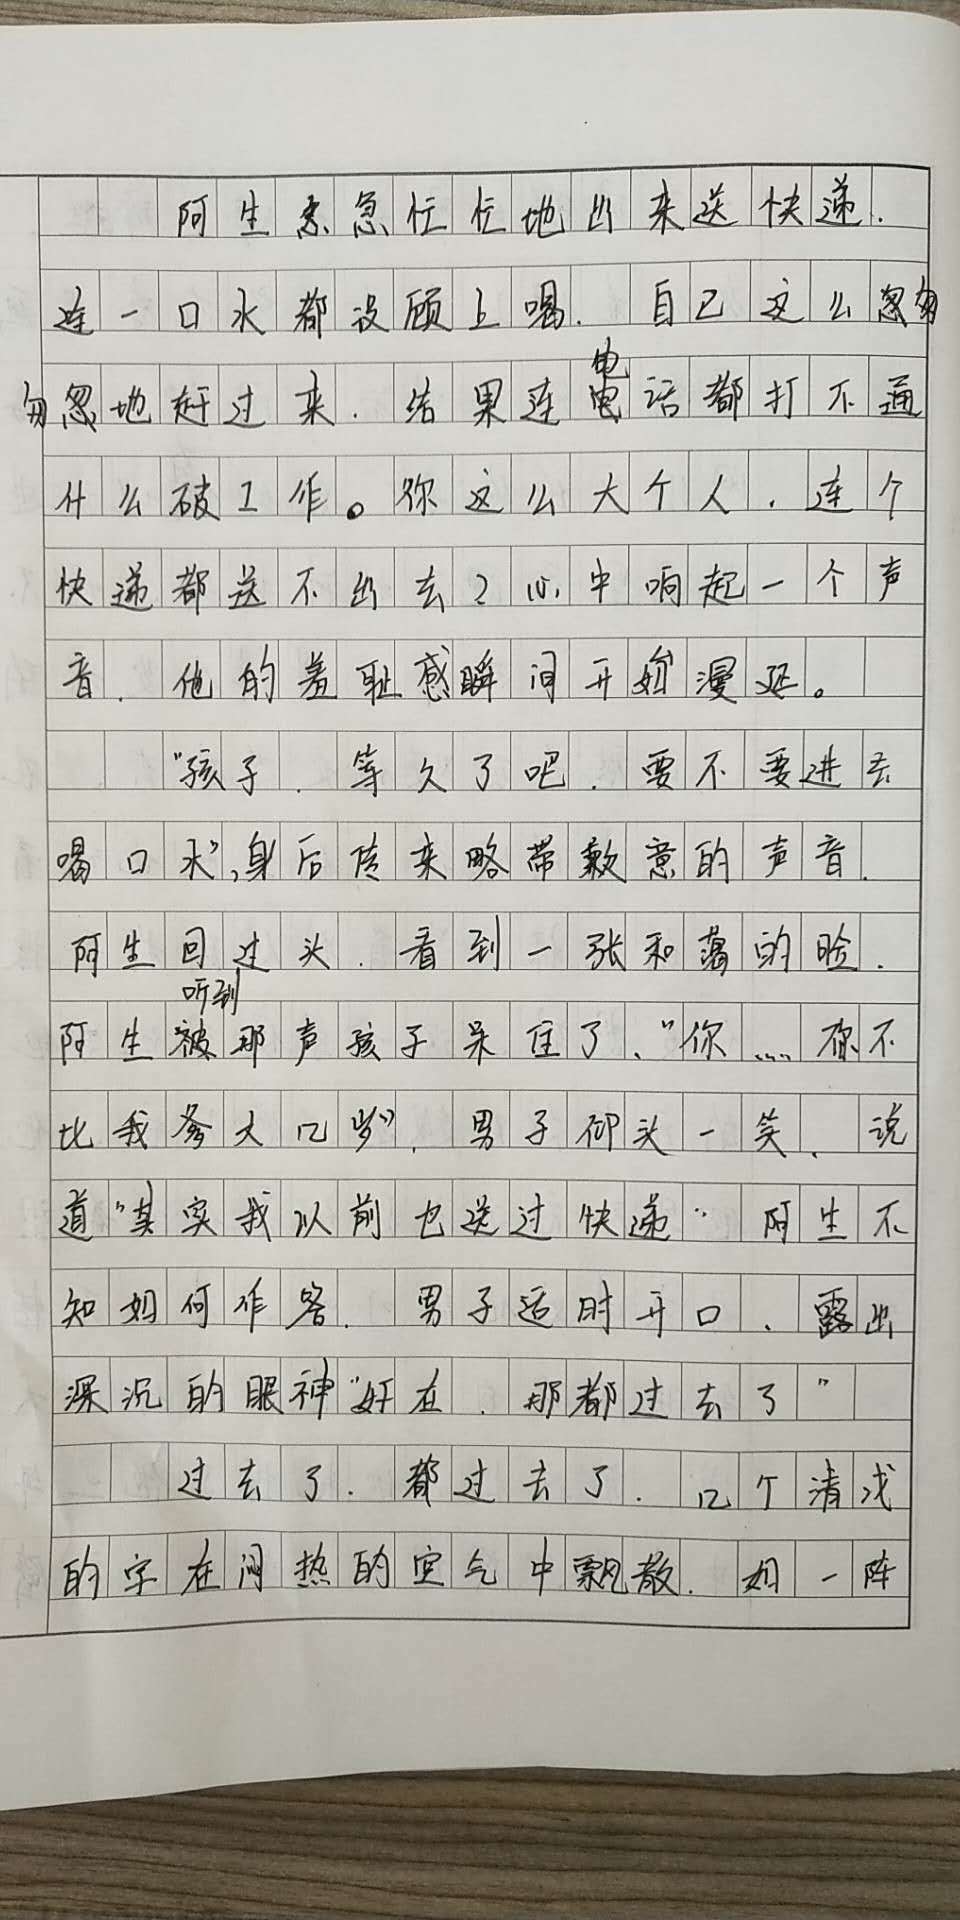 阿生急急忙忙地出来送快递.
连一口水都没顾上喝. 自己这么忽匆
匆忽地赶过来. 结果连电话都打不通
什么破工作。你这么大个人, 连个
快递都送不出去?心中响起一个声
音. 他的羞耻感瞬间开始漫延。
"孩子. 等久了吧. 要不要进去
喝口水",身后传来略带歉意的声音.
阿生回过头. 看到一张和蔼的脸.
阿生听到那声孩子呆住了、"你....你不
比我爹大几岁". 男子仰头一笑. 说
道"其实我以前也送过快递" 阿生不
知如何作答. 男子适时开口、露出
深沉的眼神"好在. 那都过去了"
过去了. 都过去了. 几个清浅
的字在闷热的空气中飘散. 如一阵